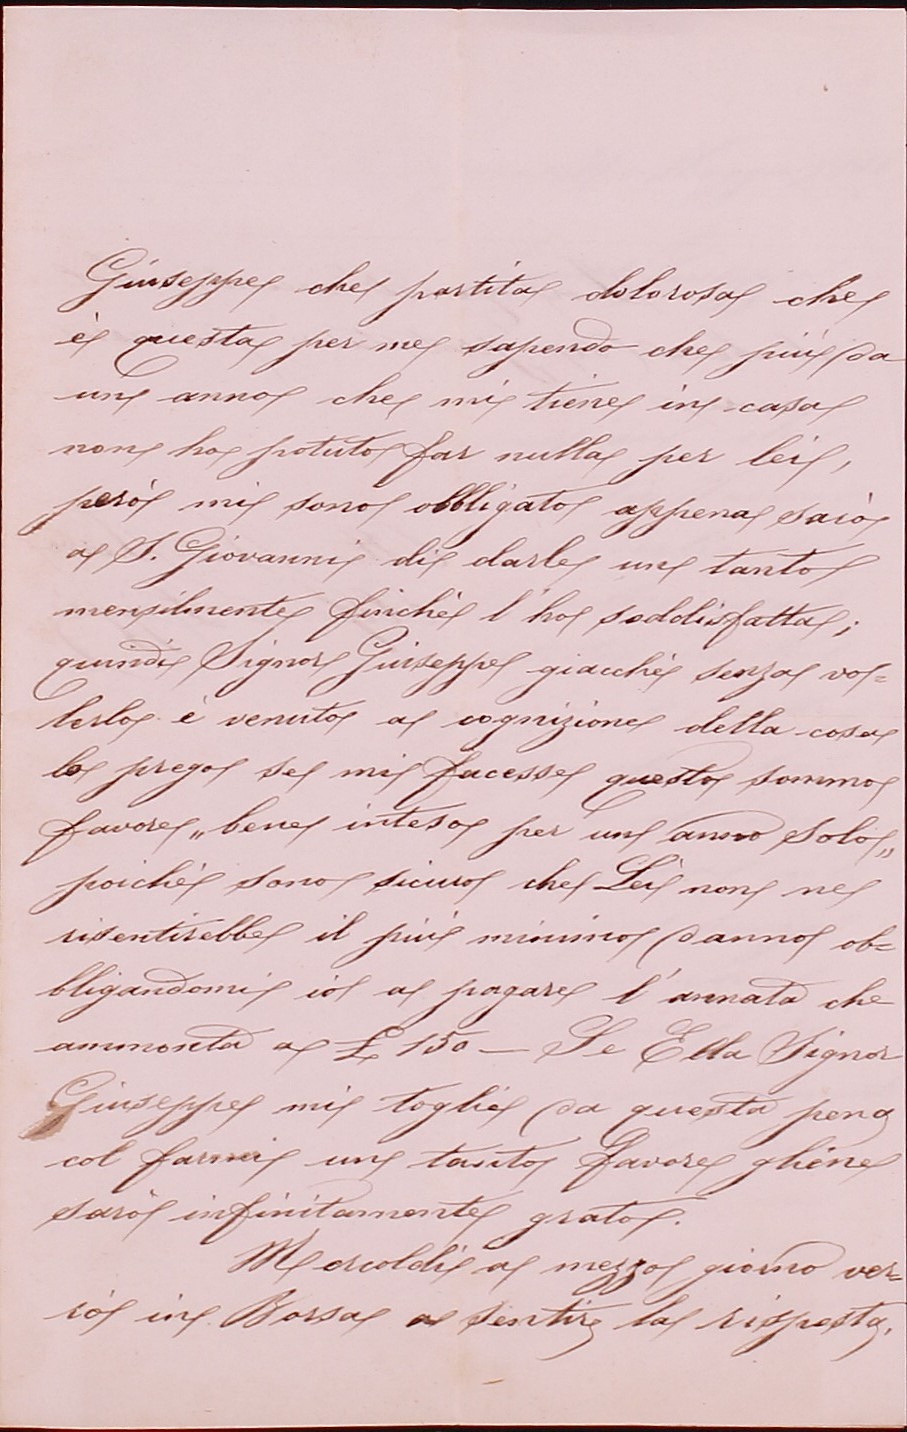 Giuseppe che partita dolorosa che
è questa per me sapendo che più da
un anno che mi tiene in casa
non ho potuto far nulla per lei,
però mi sono obbligato appena sarò
a S. Giovanni di darle un tanto
mensilmente finchè l'ho soddisfatta;
quindi Signor Giuseppe giacchè senza vo=
lerlo è venuto a cognizione della cosa
lo prego se mi facesse questo sommo
favore „bene inteso per un anno solo„
poichè sono sicuro che Lei non ne
risentirebbe il più minimo danno ob=
bligandomi io a pagare l'annata che
ammonta a £ 150 — Se Ella Signor
Giuseppe mi toglie da questa pena
col farmi un tanto favore gliene
sarò infinitamente grato.
Mercoldì a mezzo giorno ver=
rò in Borsa a sentire la risposta.